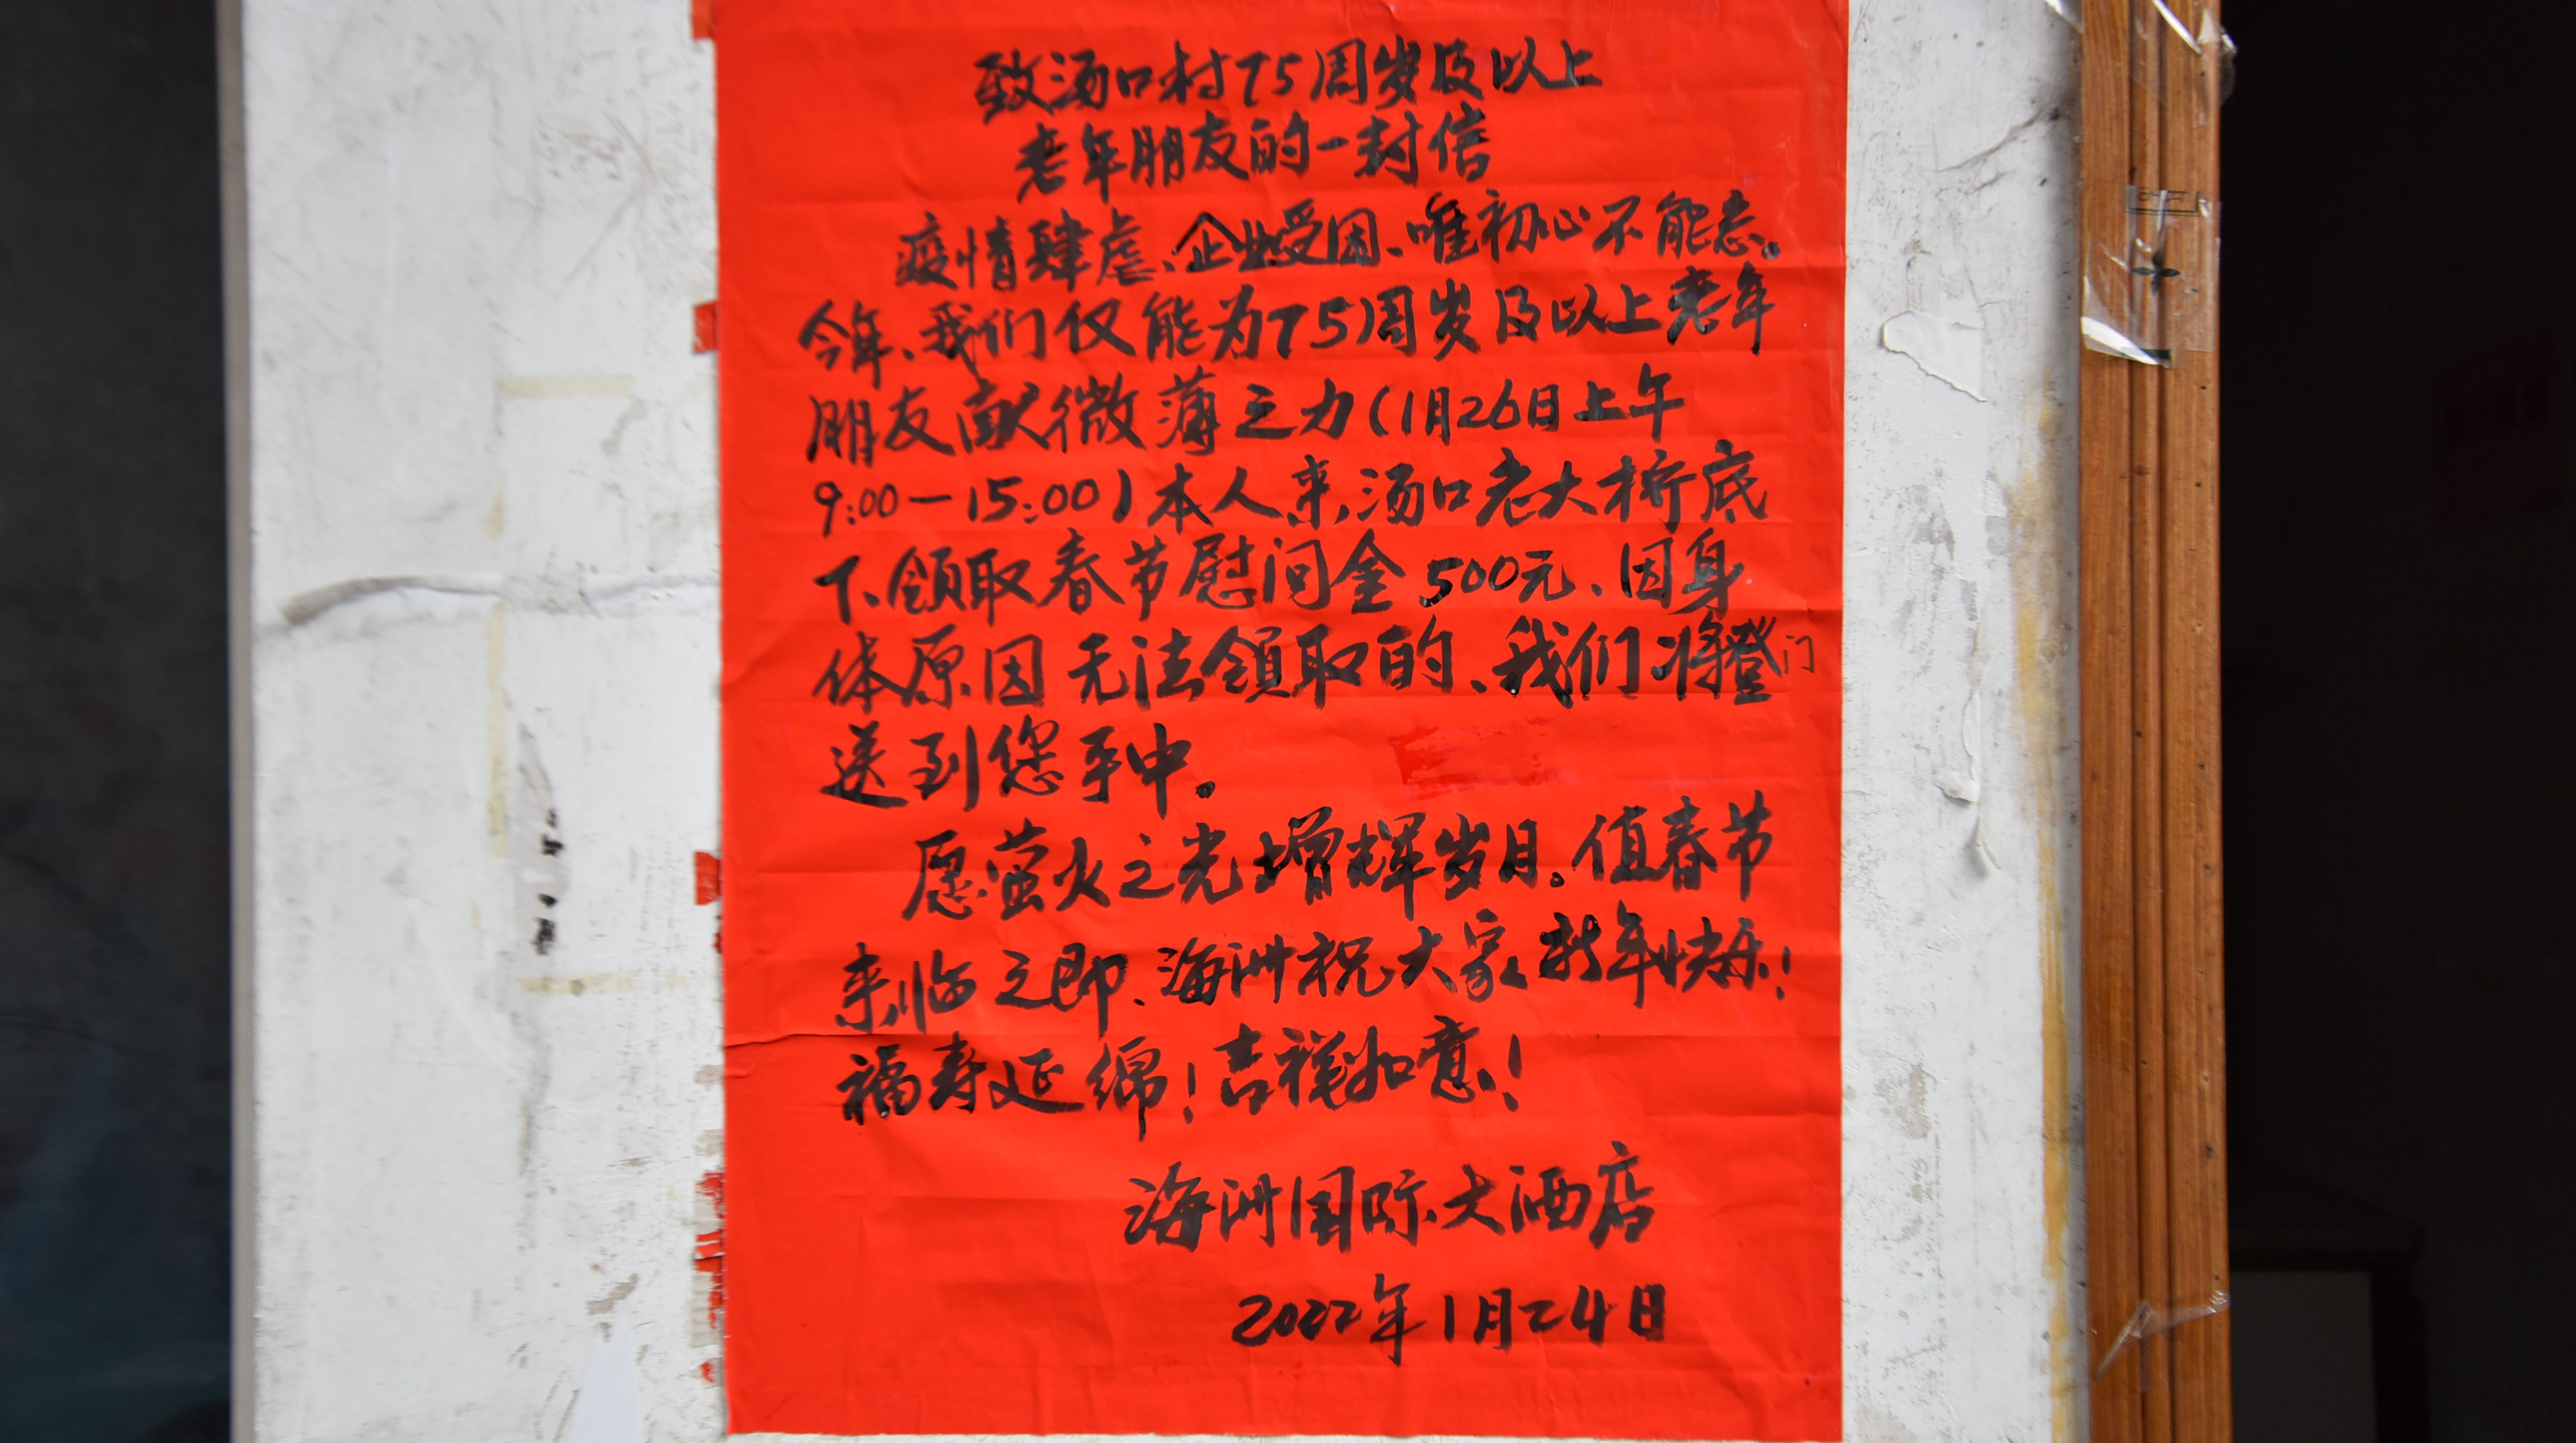 致汤口村75周岁及以上
老年朋友的一封信
疫情肆虐、企业受困、唯初心不能忘。
今年、我们仅能为75周岁及以上老年
朋友献微薄之力(1月26日上午
9:00—15:00)本人来汤口老大桥底
下、领取春节慰问金500元、因身
体原因无法领取的、我们将登门
送到您手中。
愿萤火之光增辉岁月。值春节
来临之即、海洲祝大家新年快乐!
福寿延绵!吉祥如意!
海洲国际大酒店
2022年1月24日